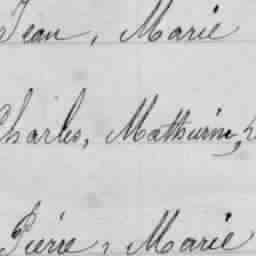 Jean, Marie
Charles, Mathurin,
Pierre, Marie